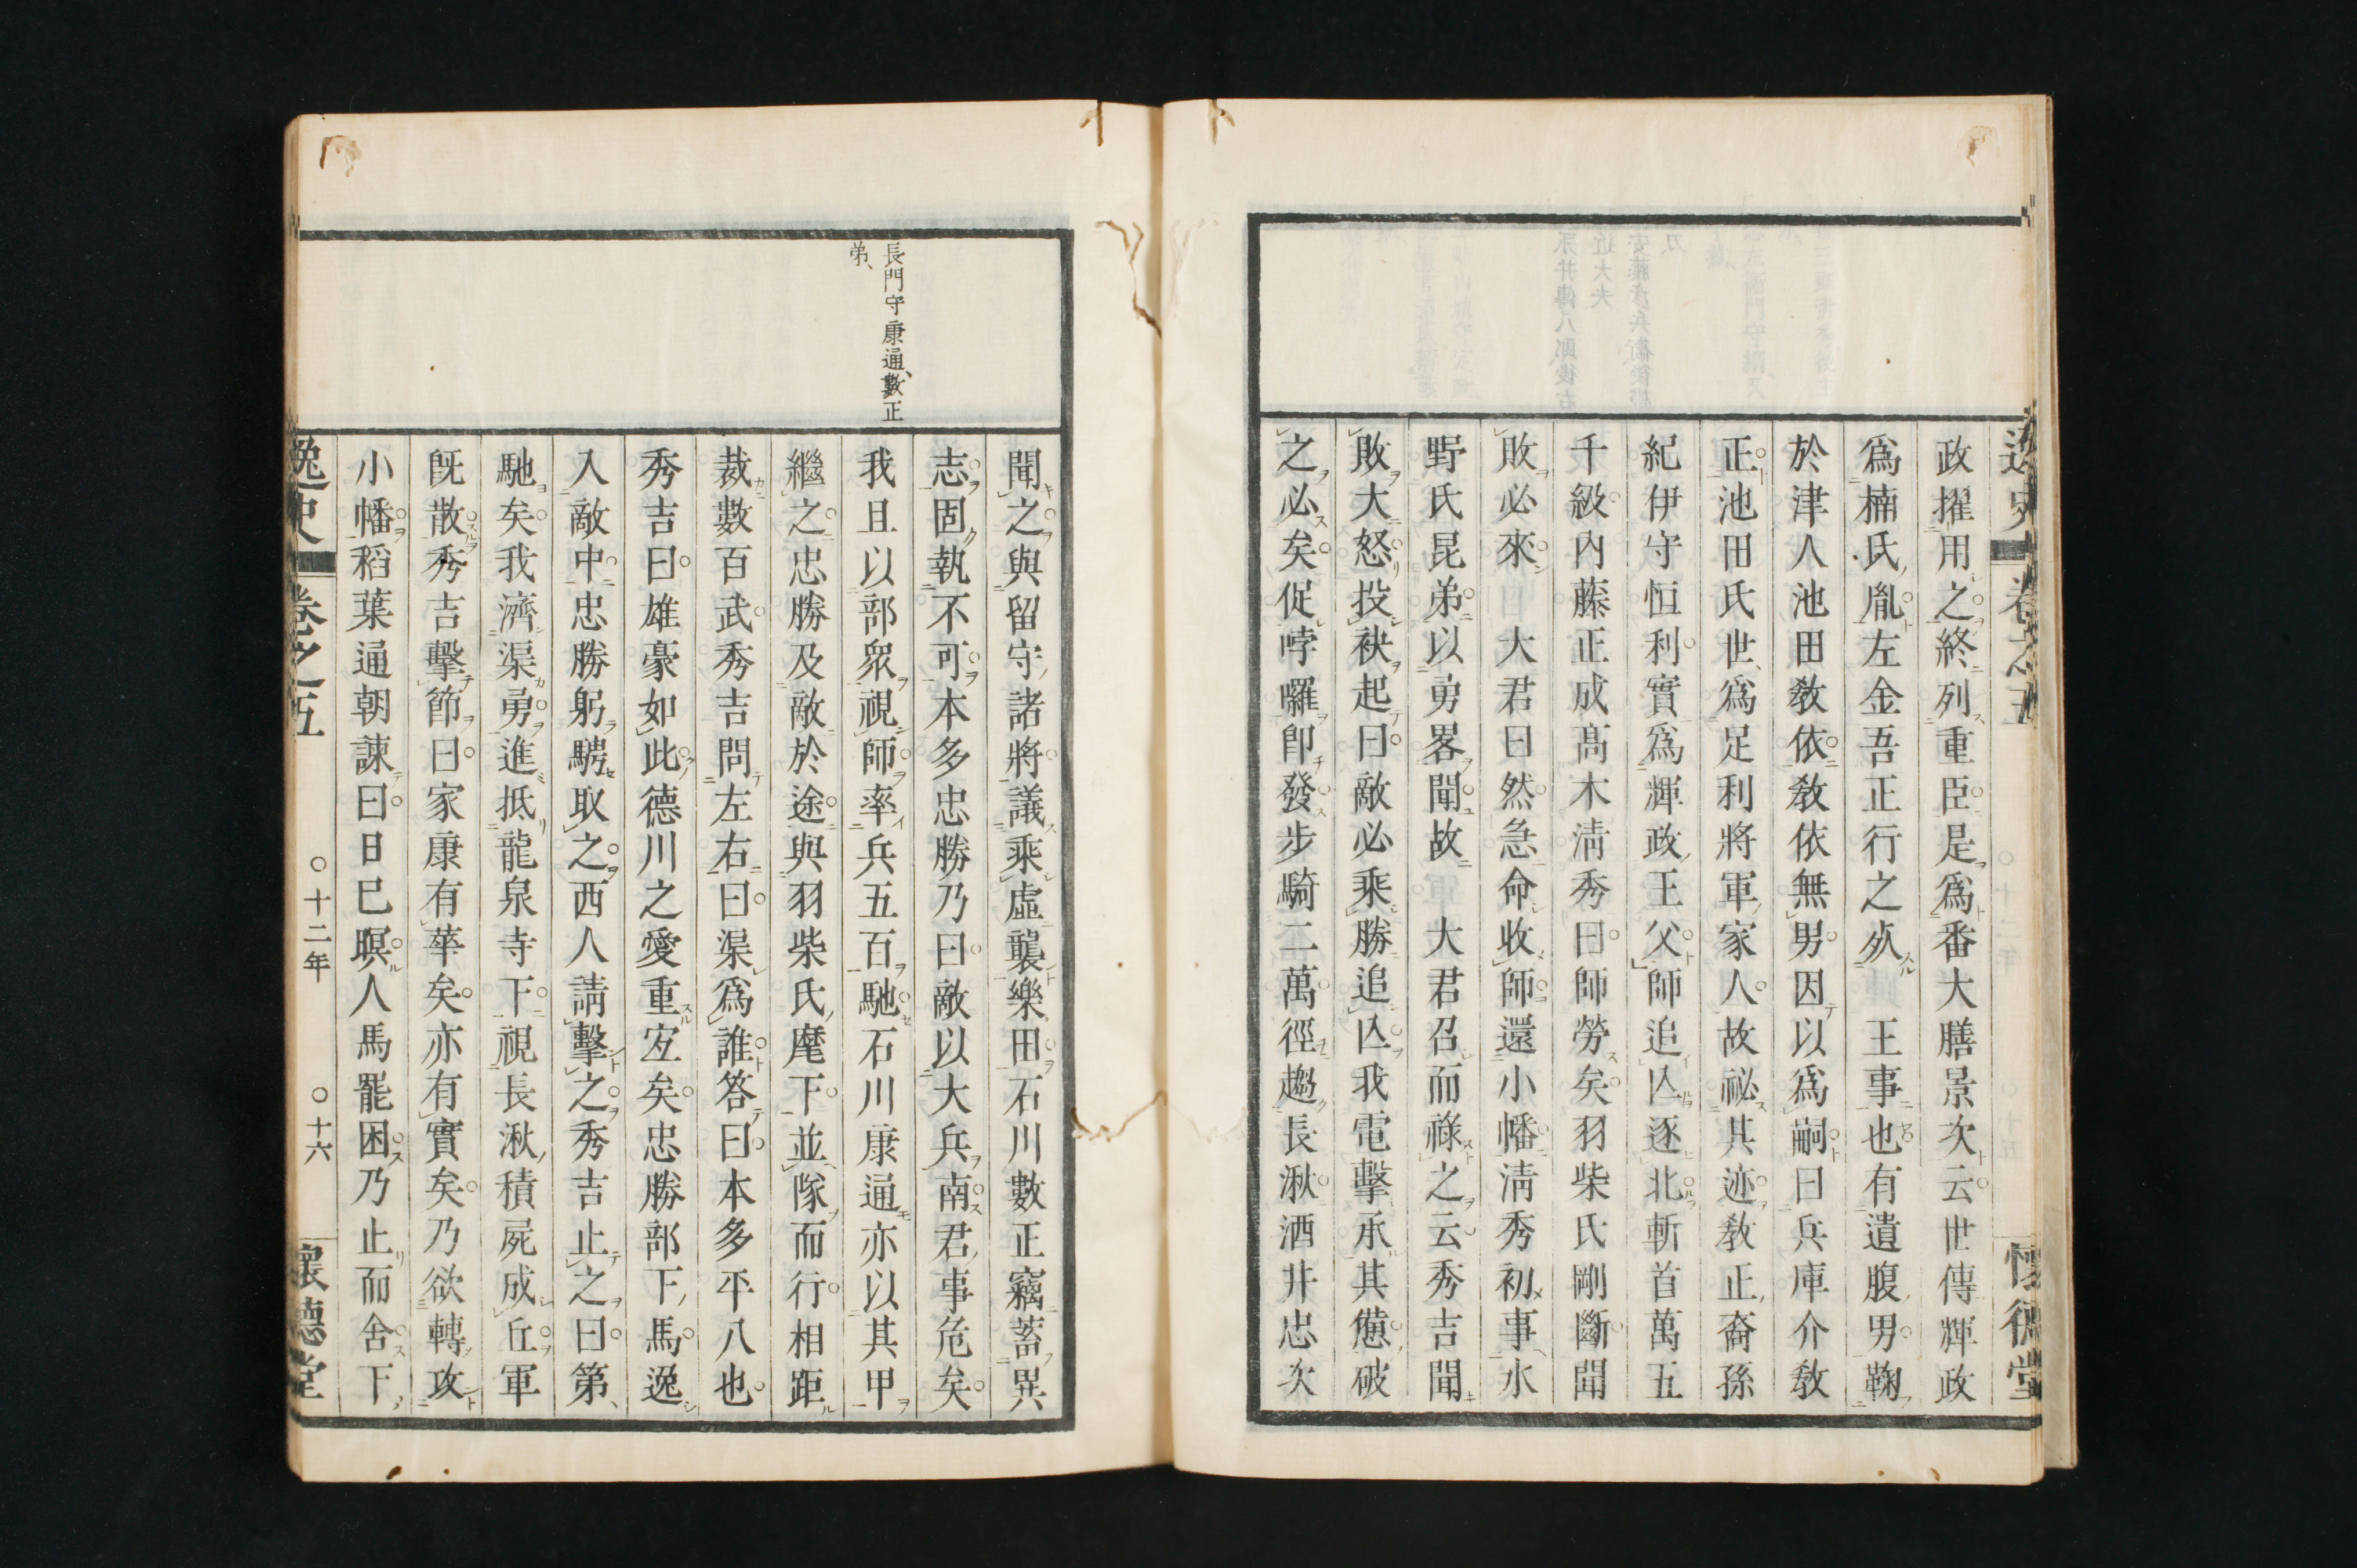 政擢用之終列重臣是爲番大膳景次云世傳輝政
爲楠氏胤左金吾正行之夾王事也有遺腹男鞠
於津人池田敎依敎依無男因以爲嗣曰兵庫介敎
正池田氏世爲足利將軍家人故祕其迹敎正裔孫
紀伊守恒利實爲輝政王父師追亾逐北斬首萬五
千級內藤正成高木淸秀曰師勞矣羽柴氏剛斷聞
敗必來 大君曰然急命收師還小幡淸秀初事水
野氏昆弟以勇畧聞故 大君召而祿之云秀吉聞
敗大怒投袂起曰敵必乘勝追亾我電擊承其憊破
之必矣促哱囉卽發步騎二萬徑趨長湫酒井忠次
長門守康通、數正
弟、
聞之與留守諸將議乘虛襲樂田石川數正竊蓄異
志固執不可本多忠勝乃曰敵以大兵南君事危矣
我且以部衆視師率兵五百馳石川康通亦以其甲
繼之忠勝及敵於途與羽柴氏麾下並隊而行相距
裁數百武秀吉問左右曰渠爲誰答曰本多平八也
秀吉曰雄豪如此德川之愛重宐矣忠勝部下馬逸
入敵中忠勝躬騁取之西人請擊之秀吉止之曰第
馳矣我濟渠勇進抵龍泉寺下視長湫積屍成丘軍
旣散秀吉擊節曰家康有華矣亦有實矣乃欲轉攻
小幡稻葉通朝諫曰日巳暝人馬罷困乃止而舍下
逸史 卷之五 十二年 十六 懷德堂